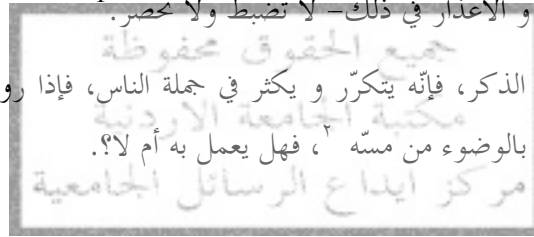 و الأعذار في ذلك– لا تضبط ولا تحصر.
جميع الحقوق محفوظة
الذكر، فإنّه يتكرّر و يكثر في جملة الناس، فإذا رو
مكتبة الجامعة الاردنية
بالوضوء من مسّه ٢، فهل يعمل به أم لا؟.
مركز ايداع الرسائل الجامعية